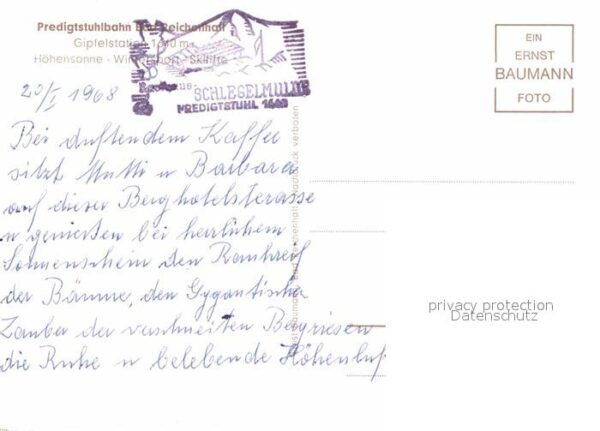 Predigtstuhlbahn Bad Reichenhall
Gipfelstation 1640 m
Höhensonne - Wintersport - Skilifte
SCHLEGELMULDE
PREDIGTSTUHL 1600
EIN
ERNST
BAUMANN
FOTO
20/I 1968
Bei duftendem Kaffee
sitzt Mutti u Barbara
auf dieser Berghotelsterasse
u genießen bei herrlichem
Sonnenschein den Rauhreif
der Bäume, den Gygantische
Zauber der verschneiten Bergriesen
die Ruhe u belebende Höhenluft
Bad Reichenhall Nachdruck verboten
privacy protection
Datenschutz